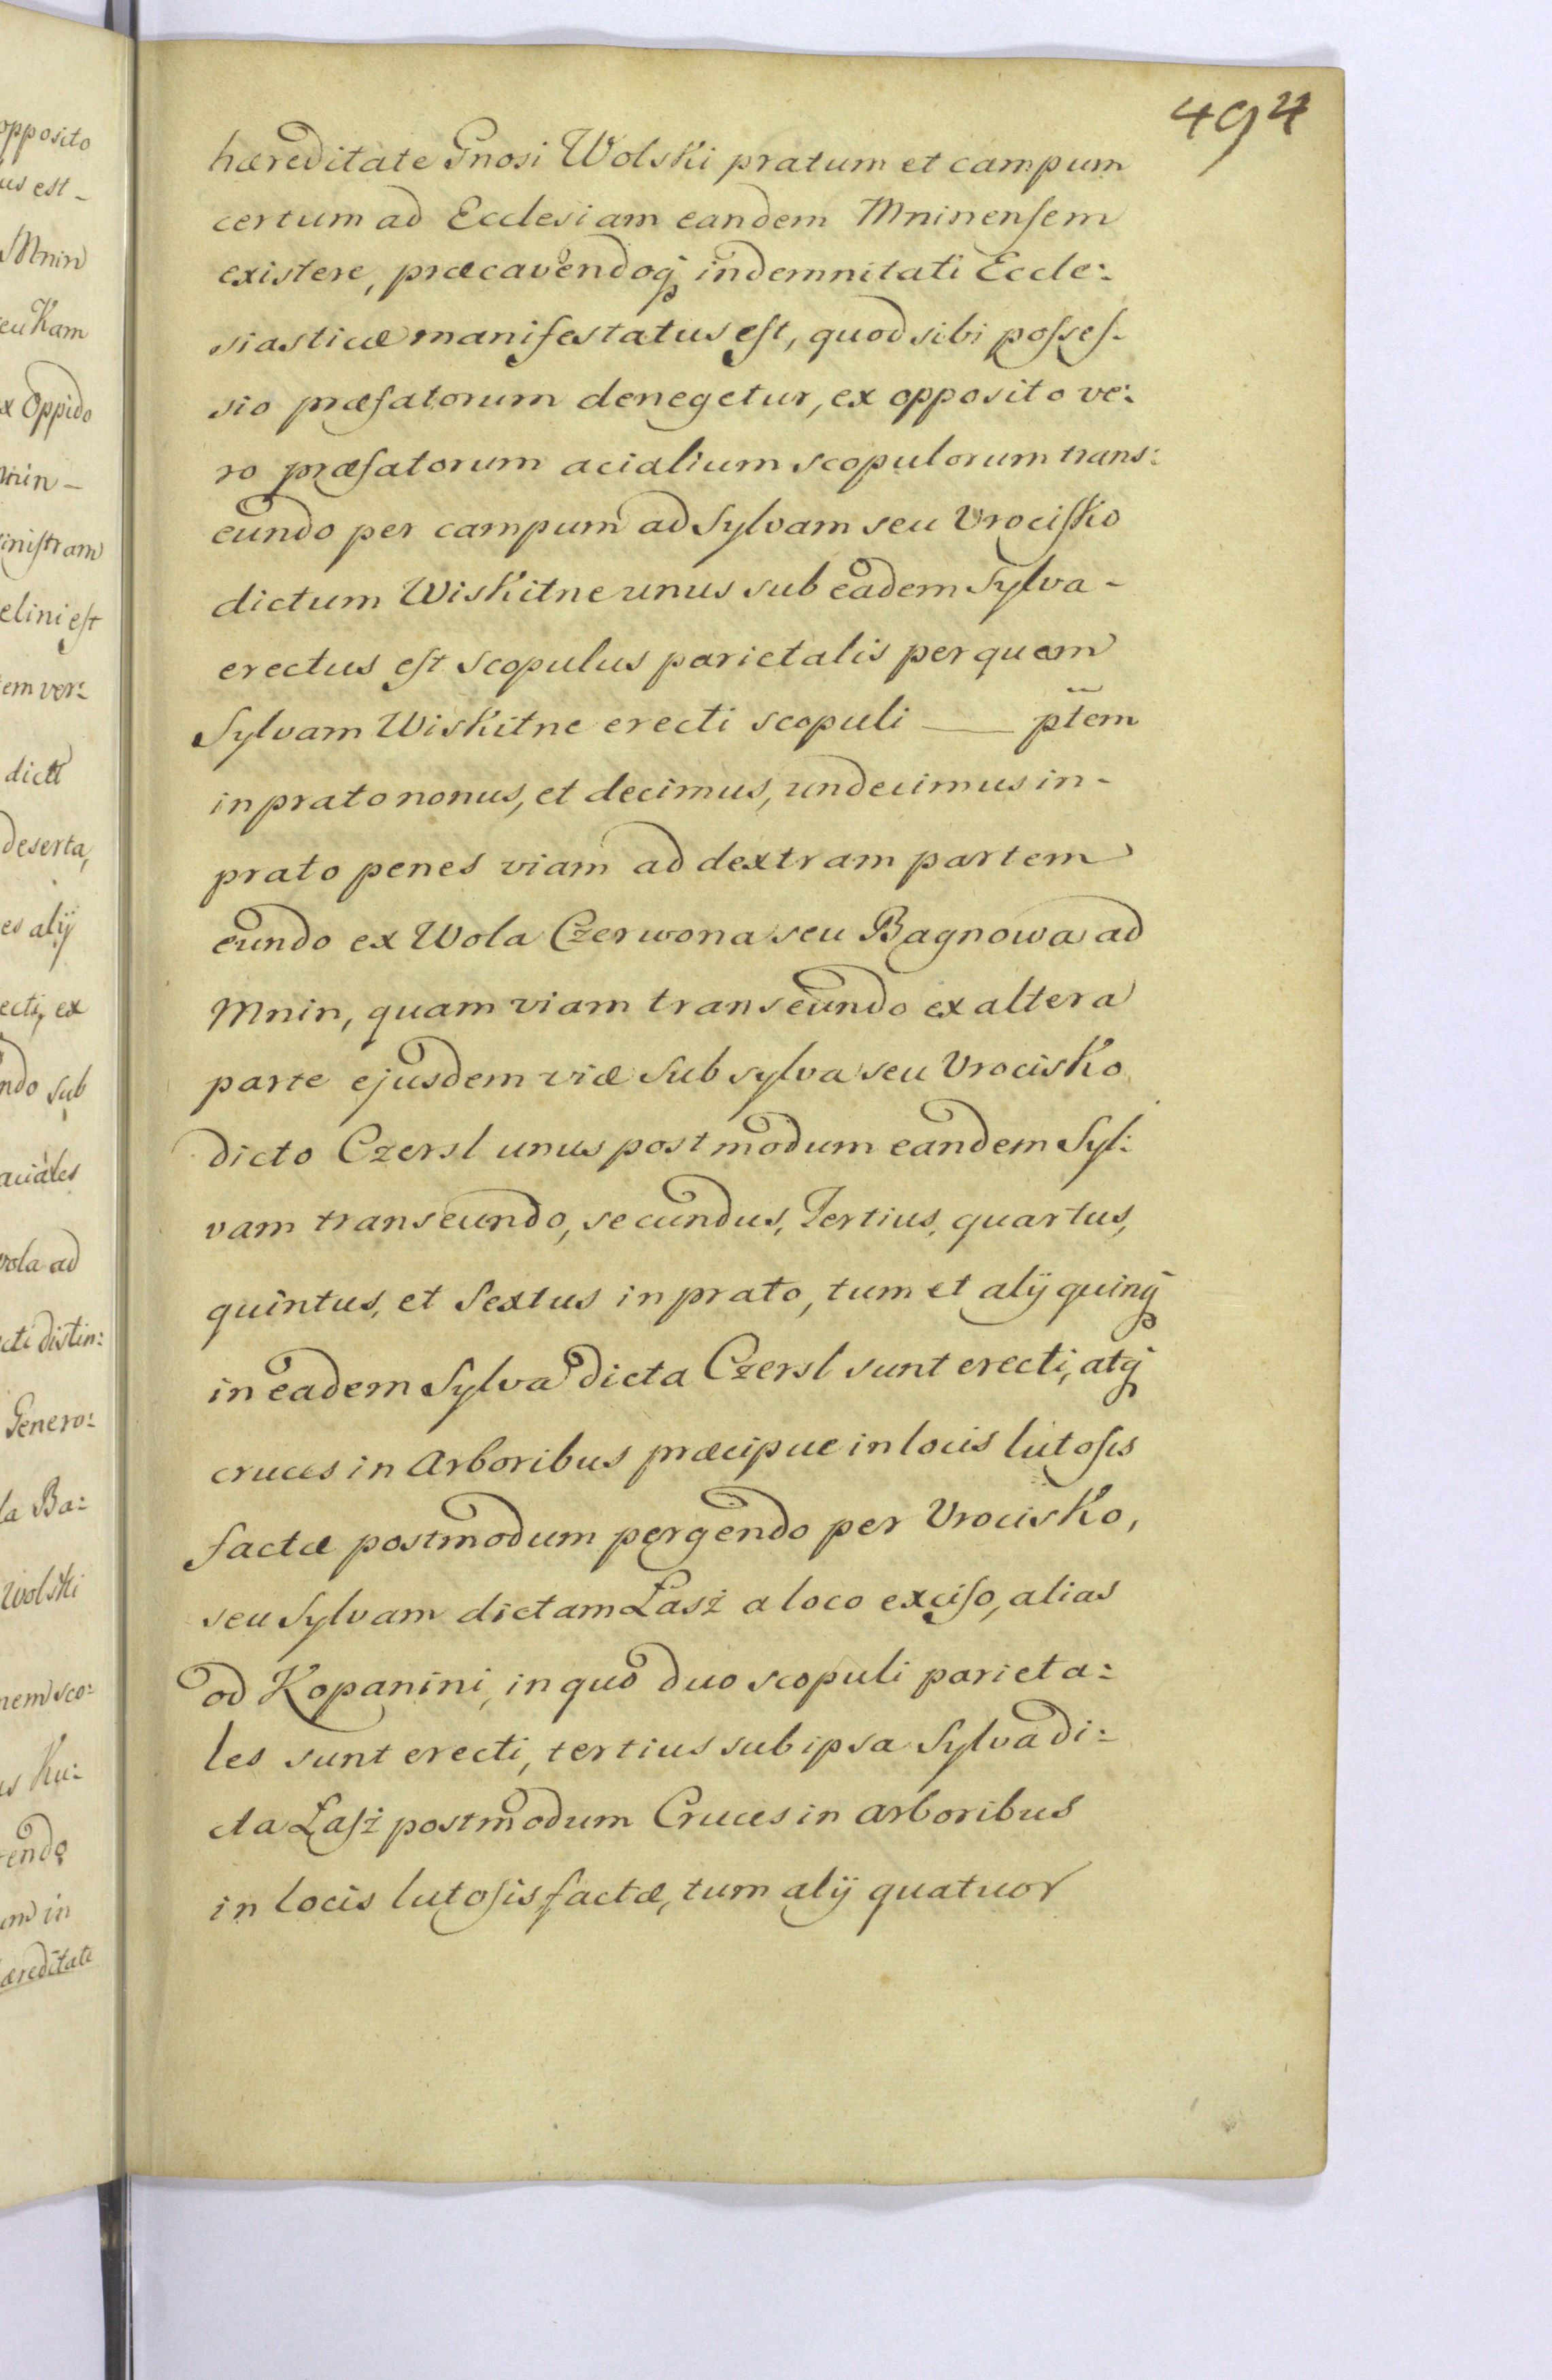 494
hæreditate Gnosi Wolski pratum et campum
certum ad Ecclesiam eandem Mninenſem
existere, præcavendoq indemnitati Eccle:
siasticæ manifestatus eſt, quod sibi poſseſ-
sio præfatorum denegetur, ex opposito ve:
ro præfatorum acialium scopulorum trans:
eundo per campum ad Sylvam seu Urociſko
dictum Wiskitne unus sub eadem Sylva -
erectus eſt scopulus parietalis per quam
Sylvam Wiskitne erecti scopuli —— ptem
in prato nonus, et decimus, undecimus in -
prato penes viam ad dextram partem
eundo ex Wola Czerwona seu Bagnowa ad
Mnin, quam viam transeundo ex altera
parte ejusdem viæ Sub sylva seu Urocisko
dicto Czersl unus post modum eandem Syl:
vam transeundo, secundus, Tertius, quartus,
quintus, et Sextus in prato, tum et alij quinq
in eadem Sylva dicta Czersl sunt erecti, atq
cruces in Arboribus præcipue in locis lutoſis
factæ postmodum pergendo per Urocisko,
seu Sylvam dictam Łasż a loco exciſo, alias
od Kopanini, in quo duo scopuli parieta:
les sunt erecti, tertius sub ipsa Sylva di:
cta Łaſż postmodum Cruces in arboribus
in locis lutoſis factæ, tum alij quatuor
opposito
us est -
Mnin
seu Kam
ex Oppido
Mnin -
siniſtram
elini eſt
tem ver:
dicti
deserta,
es alij
ecti, ex
ndo sub
aciales
Wola ad
cti distin:
Genero:
la Ba:
Wolski
nem sco:
us Ku:
endo
um in
hæreditate